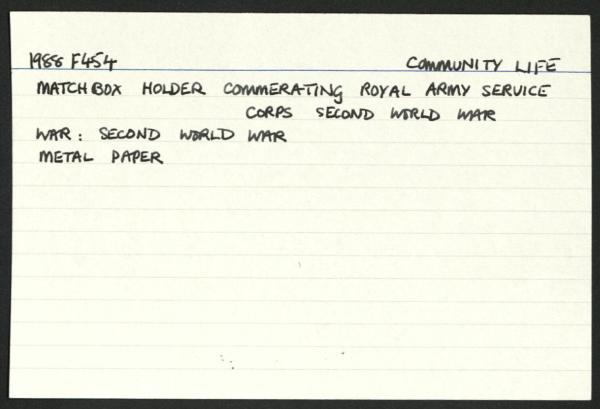 1988 F454 COMMUNITY LIFE
MATCHBOX HOLDER COMMERATING ROYAL ARMY SERVICE
CORPS SECOND WORLD WAR
WAR: SECOND WORLD WAR
METAL PAPER